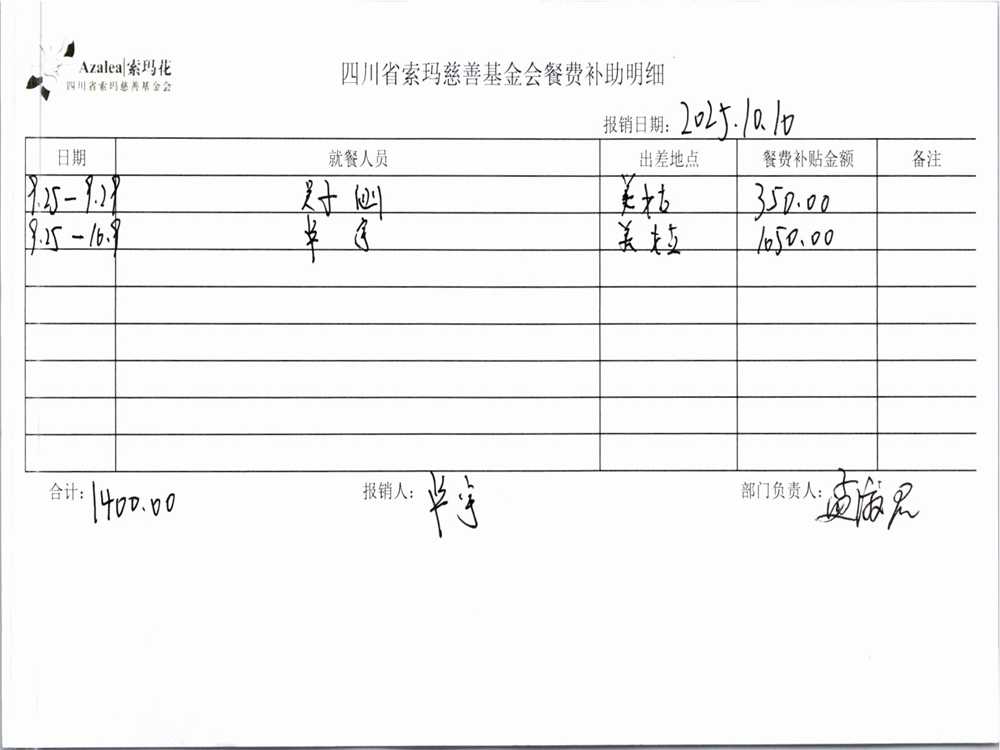 Azalea|索玛花
四川省索玛慈善基金会
四川省索玛慈善基金会餐费补助明细
报销日期：2025.10.10
日期 就餐人员 出差地点 餐费补贴金额 备注
9.25-9.29 吴子 美姑 350.00
9.25-10.9 毕宇 美姑 1050.00
合计：1400.00 报销人：毕宇 部门负责人：